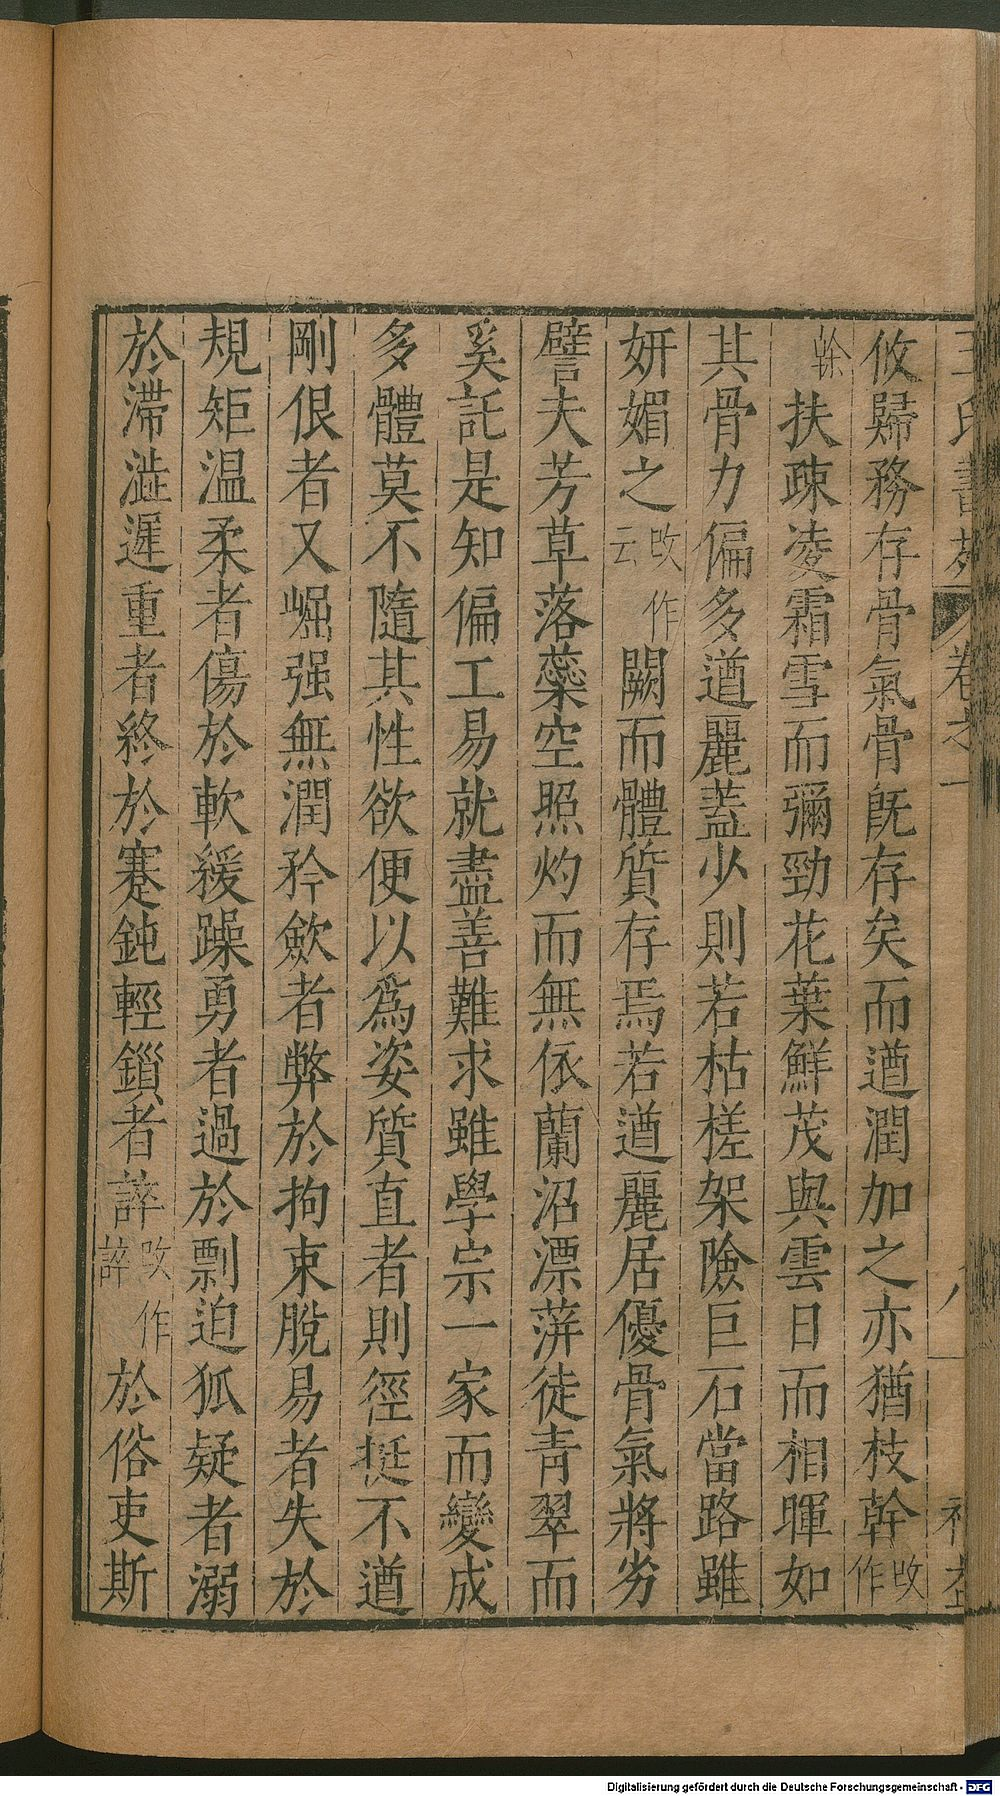 王氏書苑 卷之一 八
攸歸務存骨氣骨旣存矣而遒潤加之亦猶枝幹攺作
榦扶疎凌霜雪而彌勁花葉鮮茂與雲日而相暉如
其骨力偏多遒麗蓋少則若枯槎架險巨石當路雖
妍媚之攺作云闕而體質存焉若遒麗居優骨氣將劣
譬夫芳草落蘂空照灼而無依蘭沼漂蓱徒青翠而
奚託是知偏工易就盡善難求雖學宗一家而變成
多體莫不隨其性欲便以爲姿質直者則徑挺不遒
剛佷者又崛强無潤矜歛者弊於拘束脫易者失於
規矩温柔者傷於軟緩躁勇者過於剽迫狐疑者溺
於滯澁遲重者終於蹇鈍輕鎖者誶攺作誶於俗吏斯
Digitalisierung gefördert durch die Deutsche Forschungsgemeinschaft - DFG